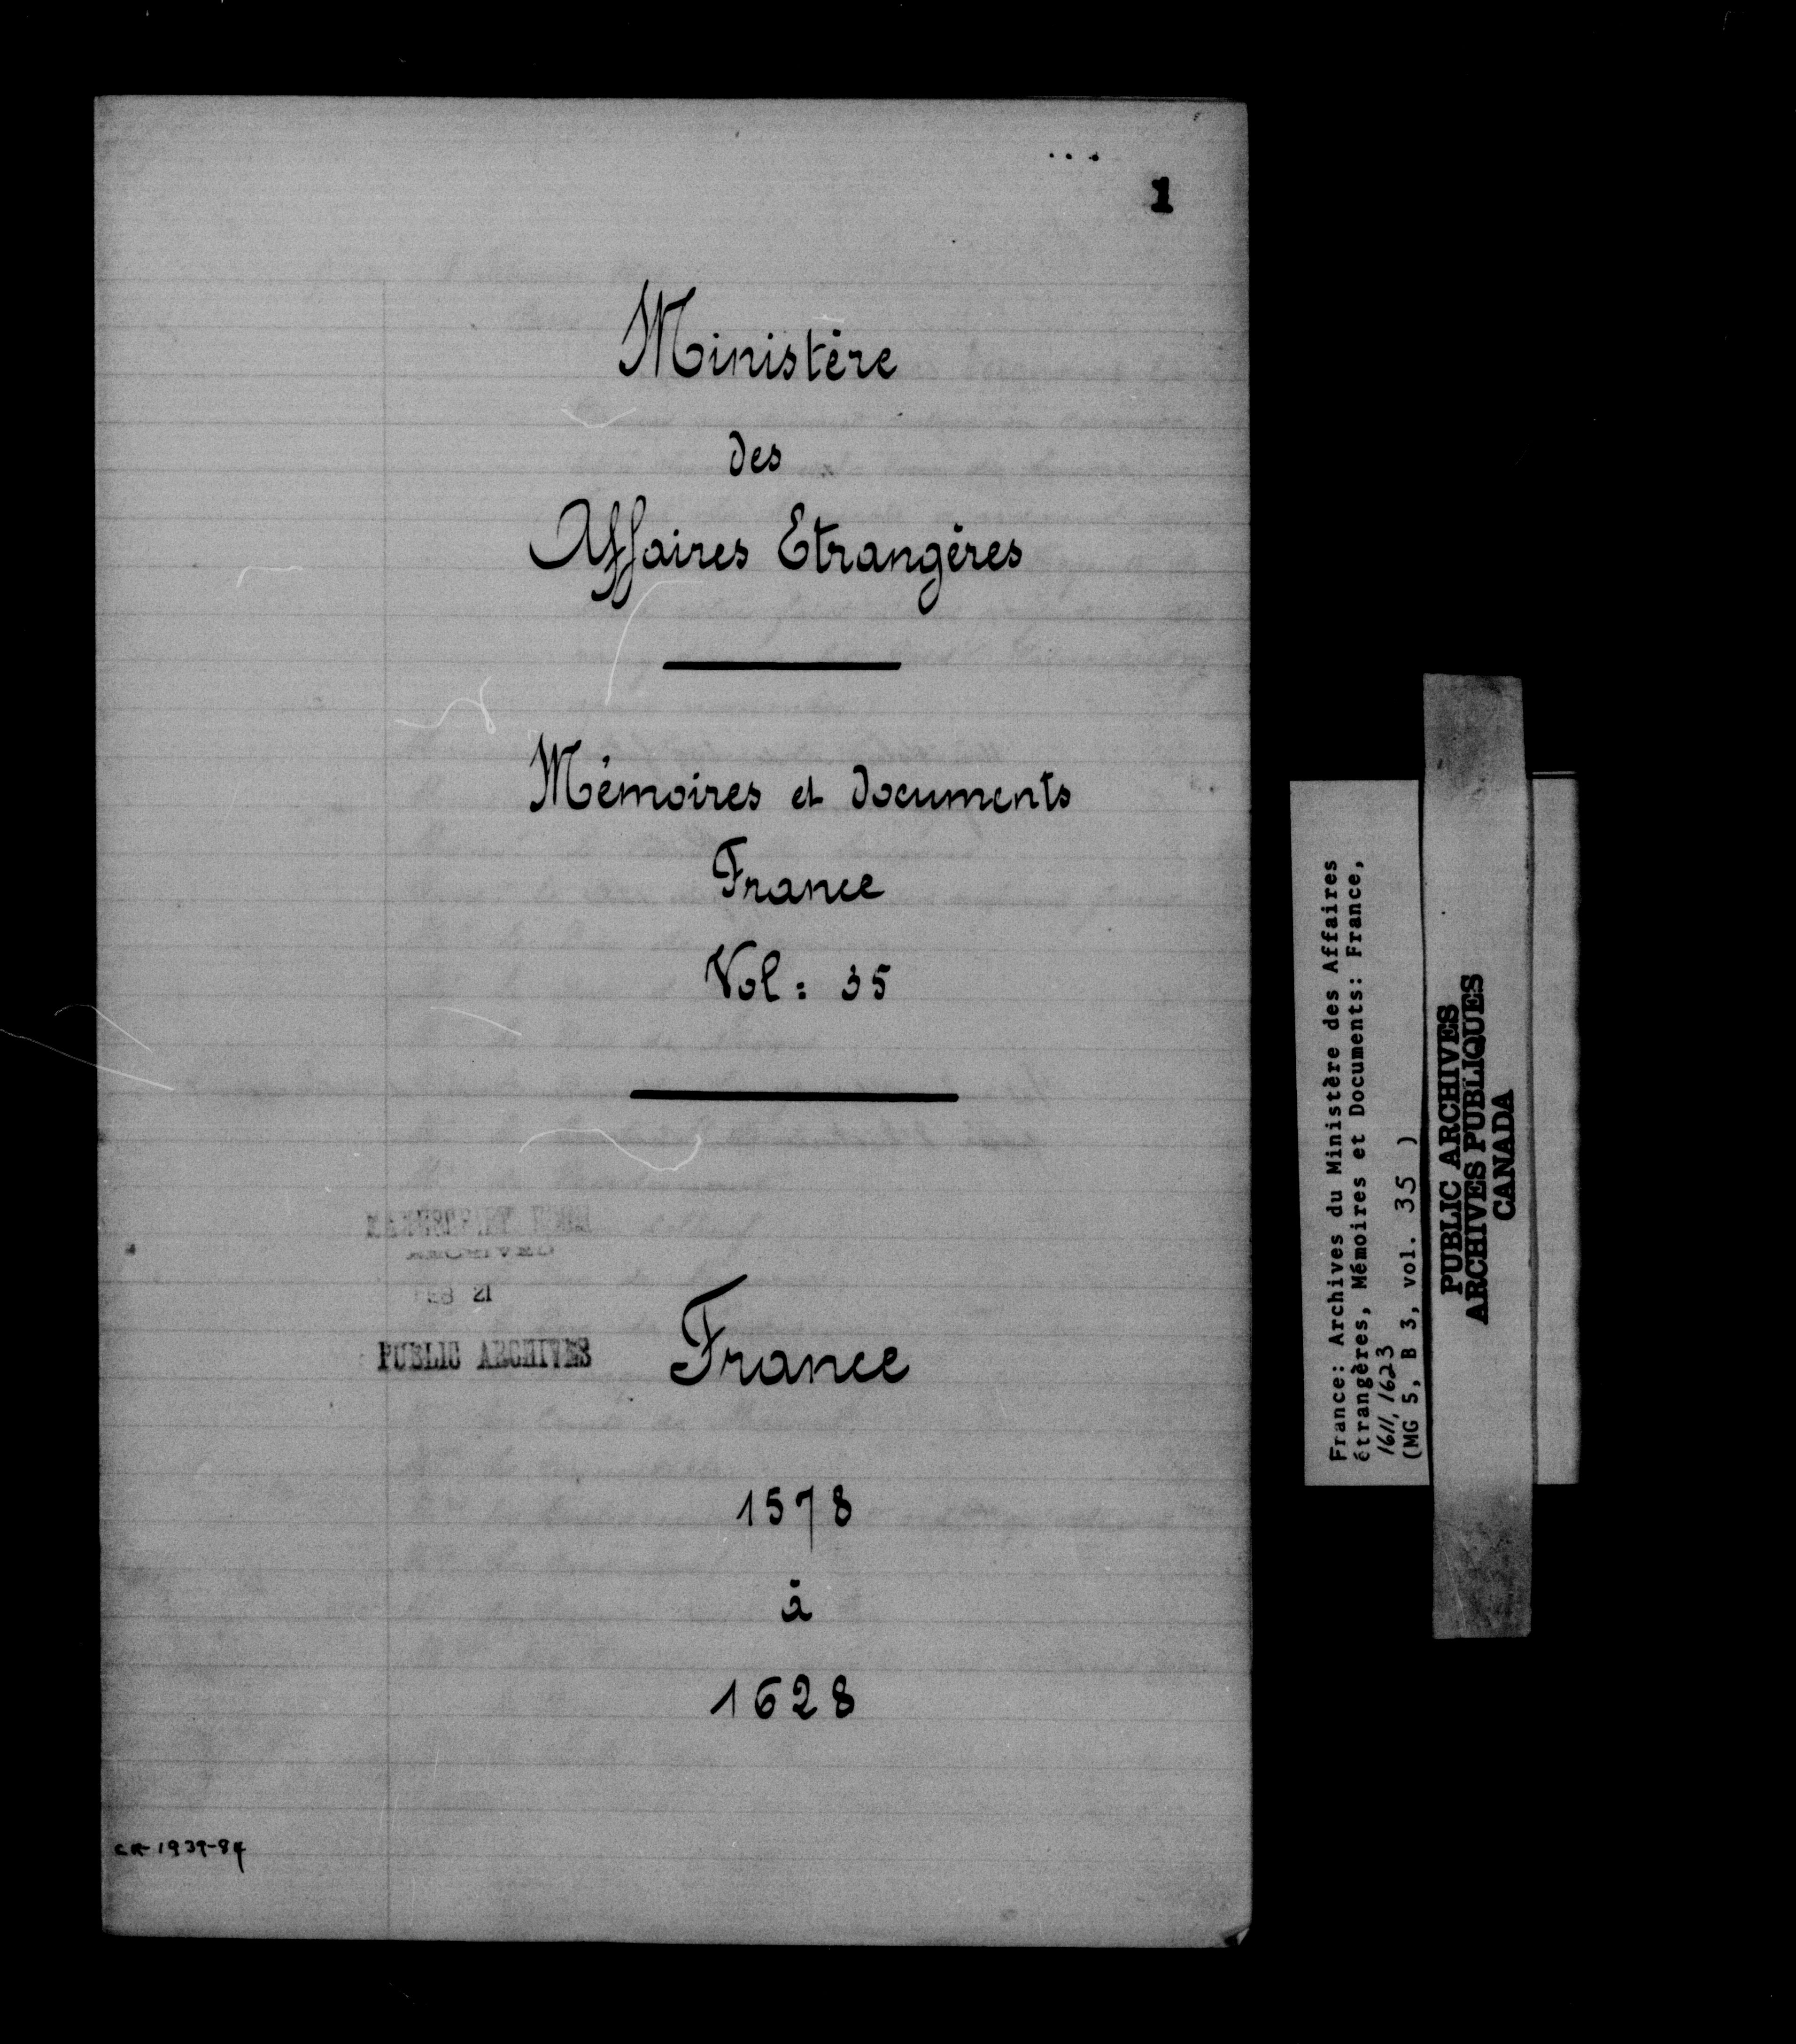 1
Ministère
des
Affaires Etrangères
Mémoires et documents
France
Vol: 35
MANUSCRIPT ROOM
RECEIVED
FEB 21
PUBLIC ARCHIVES
France
1578
à
1628
CR-1939-84
France: Archives du Ministère des Affaires
étrangères, Mémoires et Documents: France,
1611, 1623
(MG 5, B 3, vol. 35 )
PUBLIC ARCHIVES
ARCHIVES PUBLIQUES
CANADA